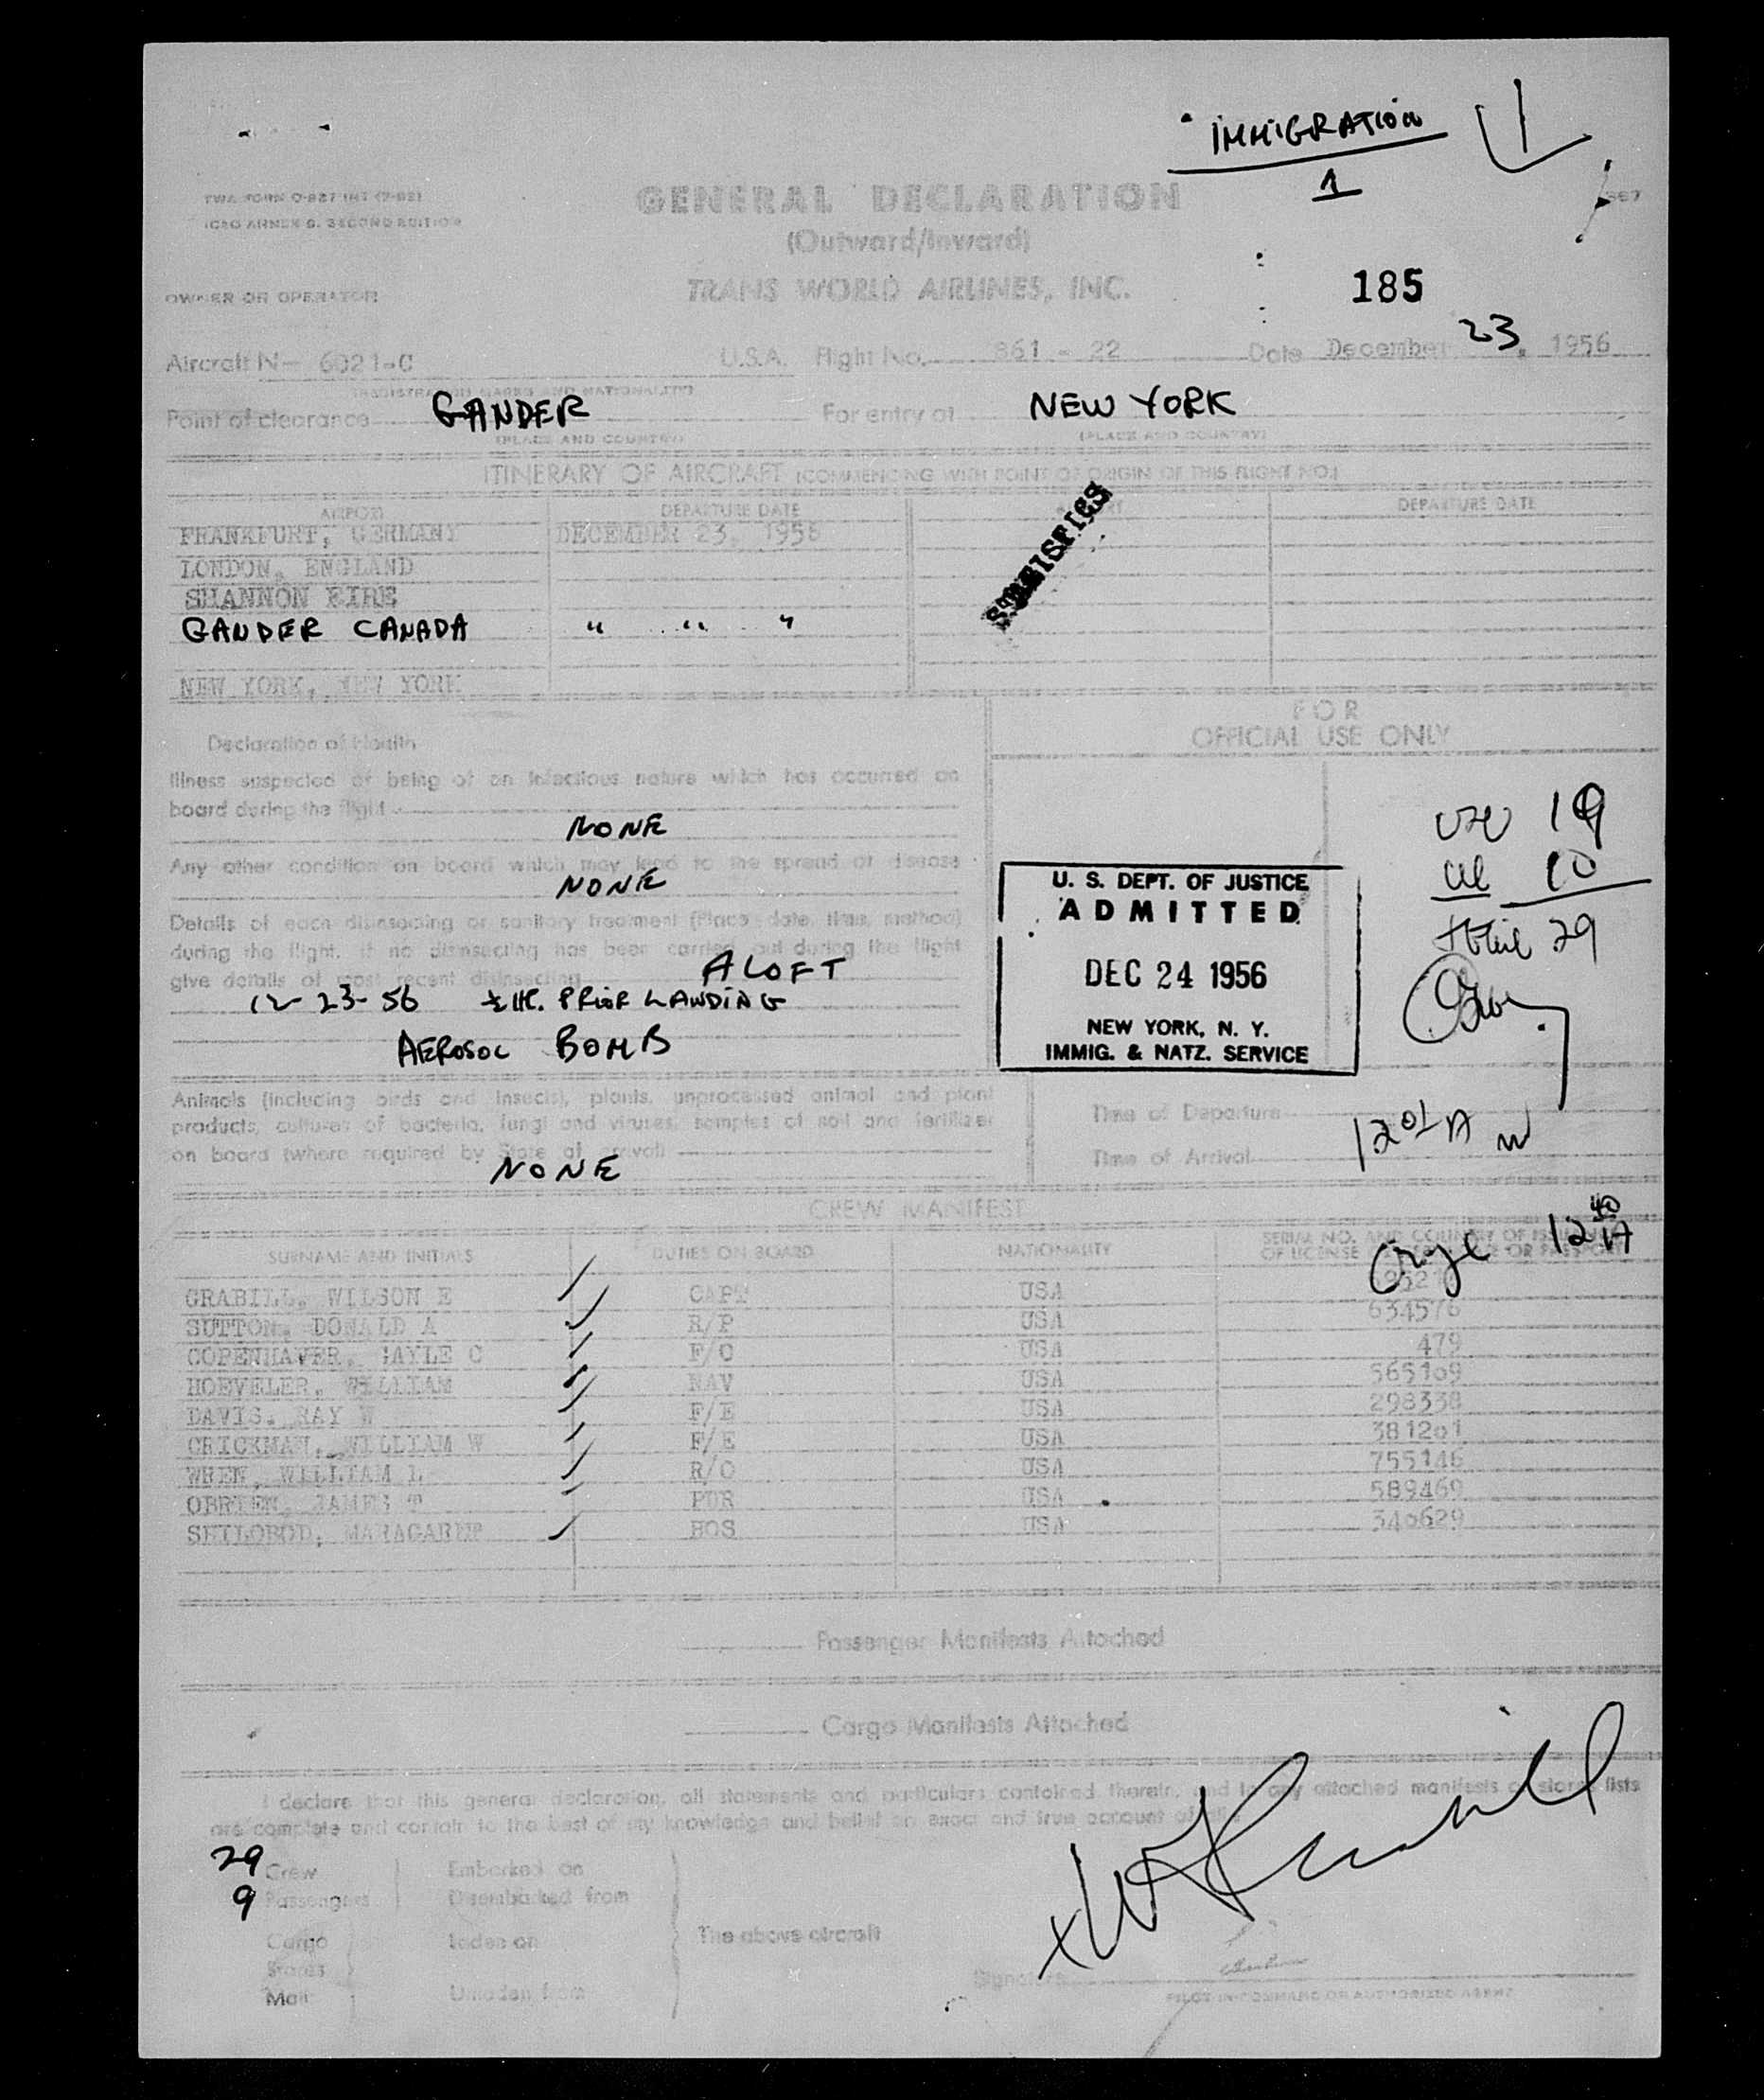 IMMIGRATION
1
TWA FORM O-827 INT (7-52)
ICAO ANNEX 9. SECOND EDITION
GENERAL DECLARATION
(Outward/Inward)
OWNER OR OPERATOR
TRANS WORLD AIRLINES, INC.
185
Aircraft N- 6021-C U.S.A. Flight No. 861 - 22 Date December 23, 1956
(REGISTRATION MARKS AND NATIONALITY)
Point of clearance GANDER For entry at NEW YORK
(PLACE AND COUNTRY) (PLACE AND COUNTRY)
ITINERARY OF AIRCRAFT (COMMENCING WITH POINT OF ORIGIN OF THIS FLIGHT NO.)
AIRPORT DEPARTURE DATE DEPARTURE DATE
FRANKFURT, GERMANY DECEMBER 23, 1956
LONDON, ENGLAND
SHANNON EIRE
GANDER CANADA " " "
NEW YORK, NEW YORK
FOR
OFFICIAL USE ONLY
Declaration of Health
Illness suspected of being of an infectious nature which has occurred on
board during the flight
NONE
Any other condition on board which may lead to the spread of disease
NONE
Details of each disinsecting or sanitary treatment (Place, date, time, method)
during the flight. If no disinsecting has been carried out during the flight
give details of most recent disinsecting ALOFT
12-23-56 ½ HR. PRIOR LANDING
AEROSOL BOMB
USC 19
al 10
29
U. S. DEPT. OF JUSTICE
ADMITTED
DEC 24 1956
NEW YORK, N. Y.
IMMIG. & NATZ. SERVICE
Animals (including birds and insects), plants, unprocessed animal and plant
products, cultures of bacteria, fungi and viruses, samples of soil and fertilizer
on board (where required by State of arrival)
NONE
Time of Departure
Time of Arrival 12 01 A
CREW MANIFEST
SURNAME AND INITIALS DUTIES ON BOARD NATIONALITY SERIAL NO. AND COUNTRY OF ISSUANCE
OF LICENSE OR PASSPORT
12 40 A
GRABILL, WILSON E CAPT USA
SUTTON, DONALD A R/P USA 634576
COPENHAVER, GAYLE C F/O USA 479
HOEVELER, WILLIAM NAV USA 565109
DAVIS, RAY W F/E USA 298338
CRICKMAN, WILLIAM W F/E USA 381201
WREN, WILLIAM L R/O USA 755146
OBRIEN, JAMES T PUR USA 589469
SHILOBOD, MARAGARET HOS USA 340629
Passenger Manifests Attached
Cargo Manifests Attached
I declare that this general declaration, all statements and particulars contained therein, and in any attached manifests or stores lists
are complete and contain to the best of my knowledge and belief an exact and true account of
29 Crew Embarked on
9 Passengers Disembarked from
Cargo Laden on The above aircraft
Stores
Mail Unladen from
Signature
PILOT IN COMMAND OR AUTHORIZED AGENT